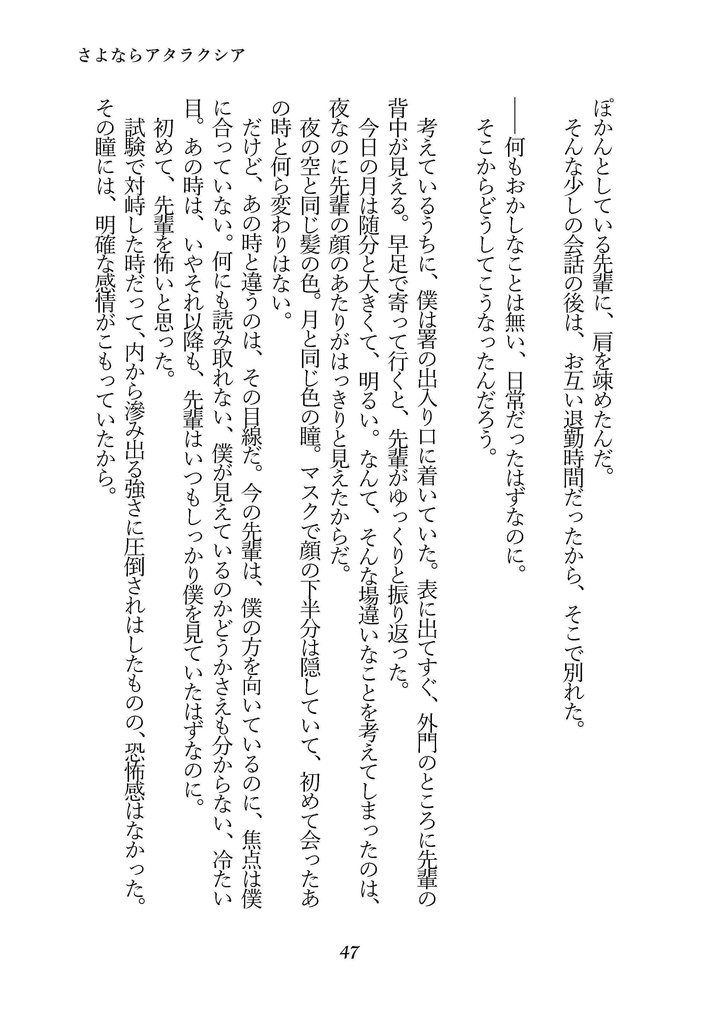 さよならアタラクシア
ぽかんとしている先輩に、肩を竦めたんだ。
そんな少しの会話の後は、お互い退勤時間だったから、そこで別れた。
――何もおかしなことは無い、日常だったはずなのに。
そこからどうしてこうなったんだろう。
考えているうちに、僕は署の出入り口に着いていた。表に出てすぐ、外門のところに先輩の
背中が見える。早足で寄って行くと、先輩がゆっくりと振り返った。
今日の月は随分と大きくて、明るい。なんて、そんな場違いなことを考えてしまったのは、
夜なのに先輩の顔のあたりがはっきりと見えたからだ。
夜の空と同じ髪の色。月と同じ色の瞳。マスクで顔の下半分は隠していて、初めて会ったあ
の時と何ら変わりはない。
だけど、あの時と違うのは、その目線だ。今の先輩は、僕の方を向いているのに、焦点は僕
に合っていない。何にも読み取れない、僕が見えているのかどうかさえも分からない、冷たい
目。あの時は、いやそれ以降も、先輩はいつもしっかり僕を見ていたはずなのに。
初めて、先輩を怖いと思った。
試験で対峙した時だって、内から滲み出る強さに圧倒されはしたものの、恐怖感はなかった。
その瞳には、明確な感情がこもっていたから。
47